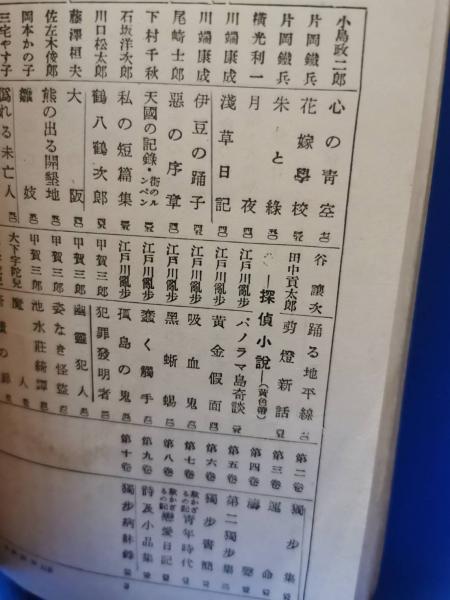 小島政二郎 心の青空
片岡鐵兵 花嫁學校
片岡鐵兵 朱と綠
横光利一 月夜
川端康成 淺草日記
川端康成 伊豆の踊子
尾崎士郎 惡の序章
下村千秋 天國の記錄・街のルンペン
石坂洋次郎 私の短篇集
川口松太郎 鶴八鶴次郎
藤澤桓夫 大阪
佐左木俊郎 熊の出る開墾地
岡本かの子 雛妓
三宅やす子 僞れる未亡人
谷讓次 踊る地平線
田中貢太郎 剪燈新話
探偵小說(黃色帶)
江戸川亂步 パノラマ島奇談
江戸川亂步 黃金假面
江戸川亂步 吸血鬼
江戸川亂步 黑蜥蜴
江戸川亂步 蠢く觸手
江戸川亂步 孤島の鬼
甲賀三郎 犯罪發明者
甲賀三郎 幽靈犯人
甲賀三郎 姿なき怪盜
甲賀三郎 池水莊綺譚
大下宇陀兒 魔人
第二卷 獨步集
第三卷 運命
第四卷 濤聲
第五卷 第二獨步集
第六卷 獨步書簡
第七卷 欺かざるの記 靑年時代
第八卷 欺かざるの記 戀愛日記
第九卷 詩及小品集
第十卷 獨步病牀錄